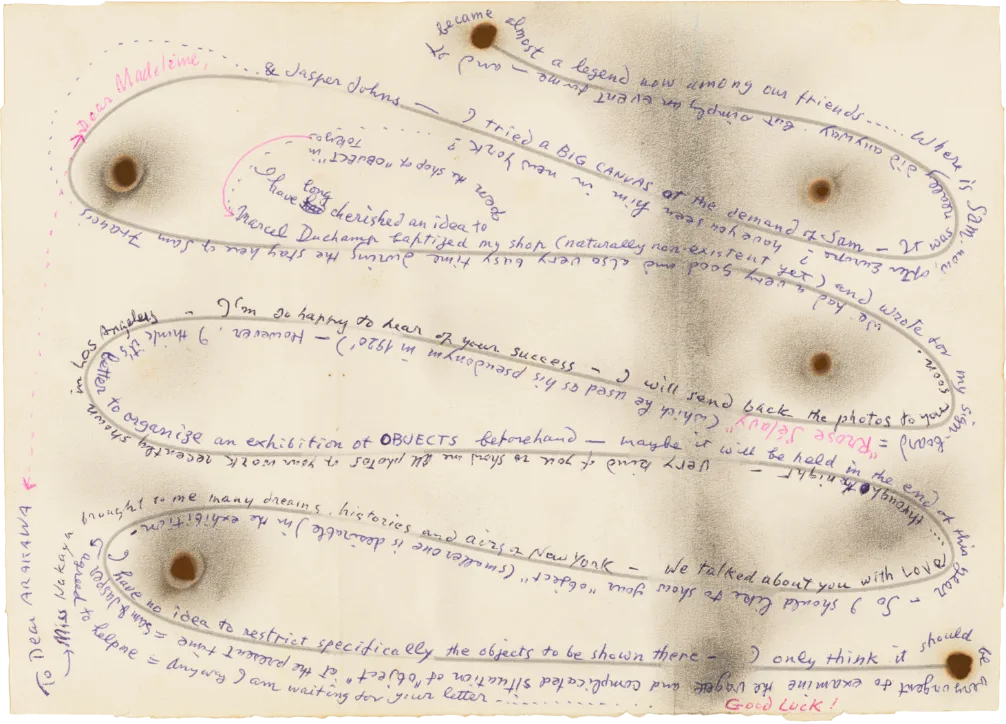 To Dear ARAKAWA &
Dear Madeleine,
Miss Nakaya brought to me many dreams, histories and airs of New York — We talked about you with LOVE
.... throughout the night —
Very kind of you to show me all photos of your work recently shown in Los Angeles
— I'm so happy to hear of your success — I will send back the photos to you soon.
We had a very good and also very busy time during the stay here of Sam Francis
& Jasper Johns — I tried a BIG CANVAS at the demand of Sam — It
really did anyway. but simply an event for me — and it
became almost a legend now among our friends..... Where is Sam, now, after Europe? have you seen him in New York?
I have long cherished an idea to
open the shop of "OBJECT" in TOKYO
Marcel Duchamp baptized my shop (naturally non-existent yet) and wrote for my sign-board = "Rrose Sélavy"
(which he used as his pseudonym in 1920') — However, I think it's
better to organize an exhibition of OBJECTS beforehand — maybe it will be held in the end of this year
— So I should like to show your "object" (smaller one is desirable) in the exhibition.
I have no idea to restrict specifically the objects to be shown there — I only think it should be
very urgent to examine the vague and complicated situation of "object" at the present time = Sam & Jasper
agreed to help me = Anyway I am waiting for your letter
Good Luck!